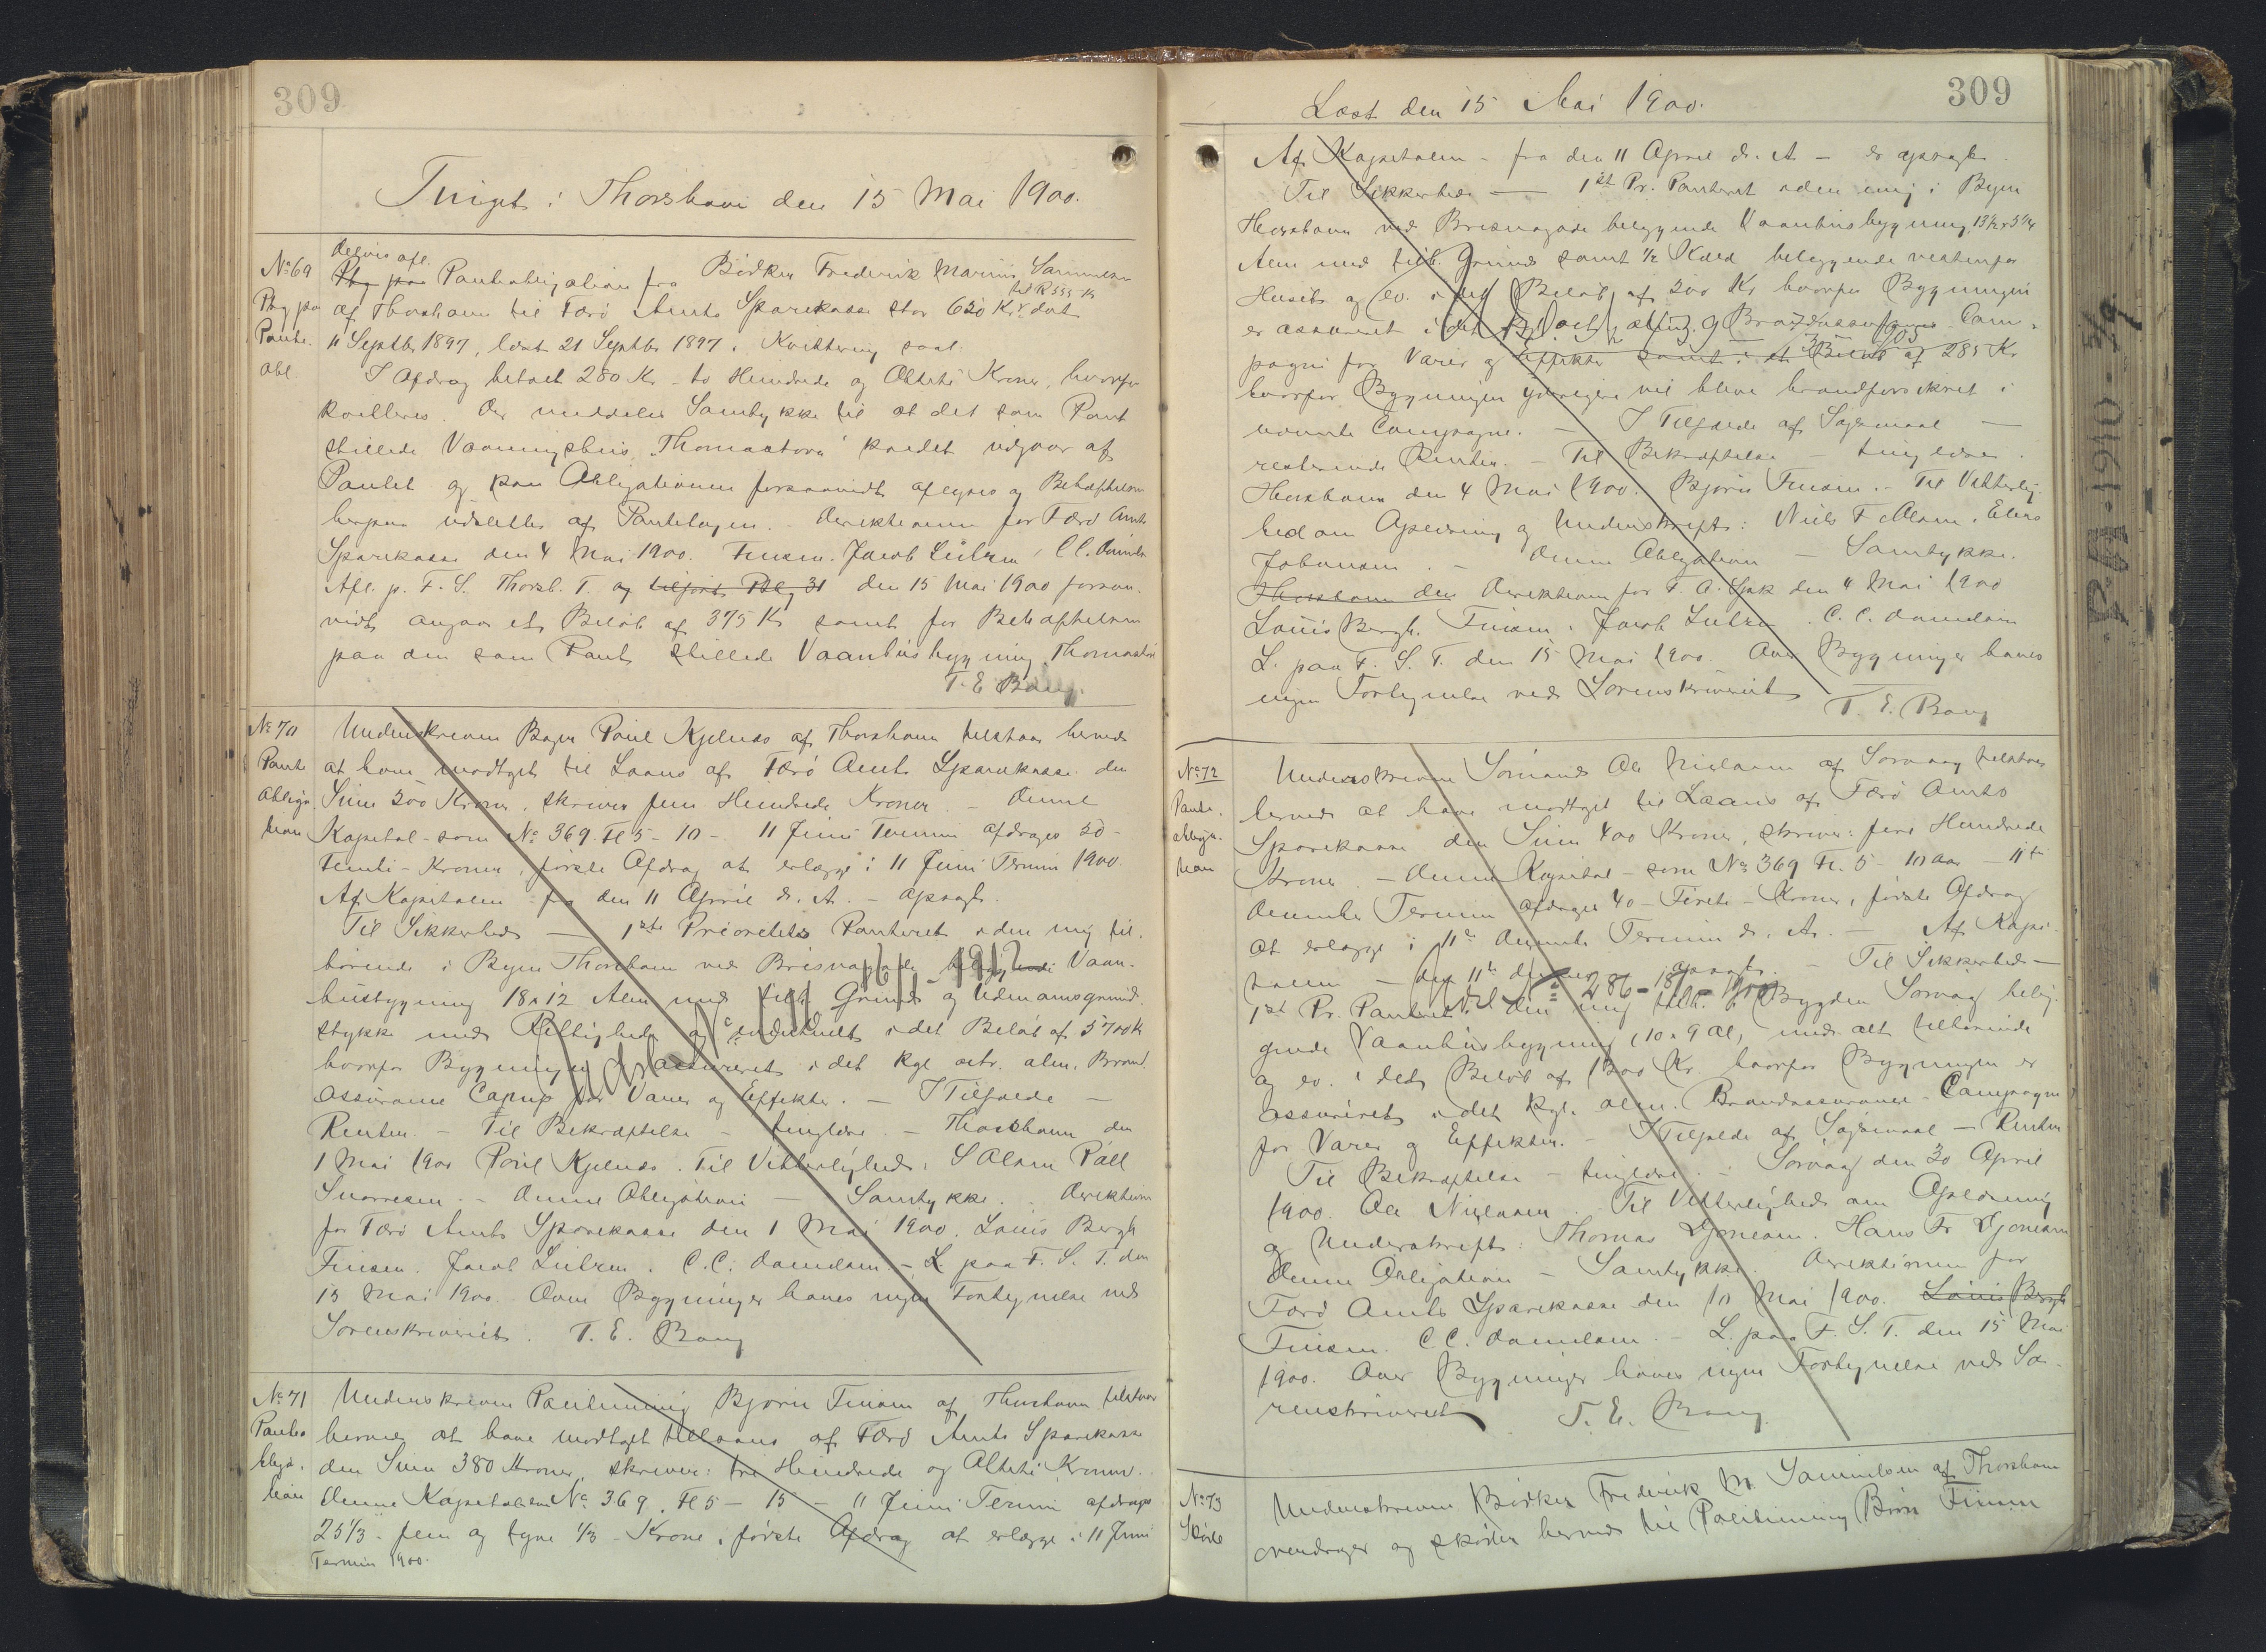 309
Tinget i Thorshavn den 15 Mai 1900.
No 69
Delvis afl.
Ptg paa Panteobligation fra Bødker Frederik Marius Samuelsen
Ptg paa
Pante.
obl.
af Thorshavn til Færø Amts Sparekasse stor 650 Kr. dat
11 Septbr 1897, læst 21 Septbr 1897. Kvittering saal.
I Afdrag betalt 280 Kr - to Hundrede og Otteti Kroner, hvorfor
kvitteres. Der meddeles Samtykke til at det som Pant
stillede Vaaningshus "Thomastova" kaldet udgaar af
Pantet og kan Obligationen forsaavidt aflyses og Behæftelsen
herpaa udslettes af Pantebogen. Direktionen for Færø Amts
Sparekasse den 4 Mai 1900. Finsen. Jacob Lützen, C.C. Danielsen
Afl. p. F. S. Thorsh. T. og tilført Ptbg 31 den 15 Mai 1900 forsaa-
vidt angaar et Beløb af 375 Kr samt for Behæftelsen
paa den som Pant stillede Vaanhusbygning "Thomastova"
T. E. Bang.
No 70
Pante
obliga
tion
Underskrevne Bager Poul Kjelnæs af Thorshavn tilstaar herved
at have modtaget til Laans af Færø Amts Sparekasse den
Sum 500 Kroner, skriver fem Hundrede Kroner. - Denne
Kapital - som No 369 Fl 5 - 10 - 11 Juni Termin afdrages 50 -
femti - Kroner, første Afdrag at erlægge i 11 Juni Termin 1900.
Af Kapitalen fra den 11 April d. A. - opsagt.
Til Sikkerhed - 1ste Prioritets Panteret i den mig til-
hørende i Byen Thorshavn ved Brisnagade beliggende Vaan-
husbygning 18 x 12 Alen med tilh. Grund og Udmarksgrund-
stykke med Rettigheder og eventuelt i det Beløb af 5700 Kr
hvorfor Bygningen assureret i det Kgl octr. alm. Brand
assurance Compg for Varer og Effekter. - I Tilfælde -
Renter. - Til Bekræftelse - tinglæse. - Thorshavn den
1 Mai 1900 Poul Kjelnæs. Til Vitterlighed: S Olsen Páll
Snorresen. - Denne Obligation - Samtykke. Direktion
for Færø Amts Sparekasse den 1 Mai 1900. Louis Bergh
Finsen. Jacob Lützen. C.C. Danielsen. - L paa F. S. T. den
15 Mai 1900. Over Bygninger haves ingen Fortegnelse ved
Sorenskriveriet. T. E. Bang
16/1 - 1912
No 71
Pante
obliga.
tion
Underskrevne Politimand Bjørn Finsen af Thorshavn tilstaar
herved at have modtaget tillaans af Færø Amts Sparekasse
den Sum 380 Kroner, skriver: tre Hundrede og Otteti Kroner.
Denne Kapital som No 369. Fl 5 - 15 - 11 Juni Termin afdrages
25 1/3 - fem og tyve 1/3 - Krone, første Afdrag at erlægge i 11 Juni
Termin 1900.
Læst den 15 Mai 1900.
309
Af Kapitalen - fra den 11 April d. A - er opsagt.
Til Sikkerhed - 1st Pr. Panteret i den mig i Byen
Thorshavn ved Brisnagade beliggende Vaanhusbygning 13 1/2 x 5 1/4
Alen med tilh. Grund samt 1/2 Kæld beliggende vestenfor
Huset og ev. i det Beløb af 500 Kr hvorfor Bygningen
er assureret i det Kgl. oct. alm. Brandassurance Com-
pagni for Varer og Effekter samt i et Beløb af 285 Kr
hvorfor Bygningen yderligere vil blive brandforsikret i
nævnte Compagni. - I Tilfælde af Søgsmaal -
resterende Renter. - Til Bekræftelse - tinglæse.
Thorshavn den 4 Mai 1900. Bjørn Finsen. - Til Vitterlig-
hed om Oplæsning og Underskrift: Niels F. Olsen. Elias
Johansen. - Denne Obligation - Samtykke.
Thorshavn den Direktionen for F. A. Spk den 4 Mai 1900
Louis Bergh. Finsen. Jacob Lützen. C. C. Danielsen
L. paa F. S. T. den 15 Mai 1900. Over Bygninger haves
ingen Fortegnelse ved Sorenskriveriet
T. E. Bang
No 72
Pante.
obliga-
tion
Underskrevne Sømand Ole Nielsen af Sorvaag tilstaar
herved at have modtaget til Laans af Færø Amts
Sparekasse den Sum 400 Kroner, skriver: fire Hundrede
Kroner. - Denne Kapital - som No 369 Fl. 5 - 10 Aar - 11te
December Termin afdrages 40 - Firti - Kroner, første Afdrag
at erlægge i 11te December Termin d. A. - Af Kapi-
talen - den 11te - opsagt. - Til Sikkerhed -
1st Pr. Panteret i den mig tilh. i Bygden Sorvaag belig-
gende Vaanhusbygning (10 x 9 Al), med alt tilhørende
og ev. i det Beløb af 1300 Kr. hvorfor Bygningen er
assureret i det Kgl. alm. Brandassurance - Compagni
for Varer og Effekter. - I Tilfælde af Søgsmaal - Renter
Til Bekræftelse - tinglæse. - Sorvaag den 30 April
1900. Ole Nielsen. Til Vitterlighed om Oplæsning
og Underskrift: Thomas Djonesen. Hans Fr Djonesen
Denne Obligation - Samtykke. Direktionen for
Færø Amts Sparekasse den 10 Mai 1900. Louis Bergh
Finsen. C C. Danielsen. - L. paa F. S. T. den 15 Mai
1900. Over Bygninger haves ingen Fortegnelse ved So-
renskriveriet T. E. Bang.
No 73
Skøde
Underskrevne Bødker Frederik M. Samuelsen af Thorshavn
overdrager og skøder herved til Politimand Bjørn Finsen